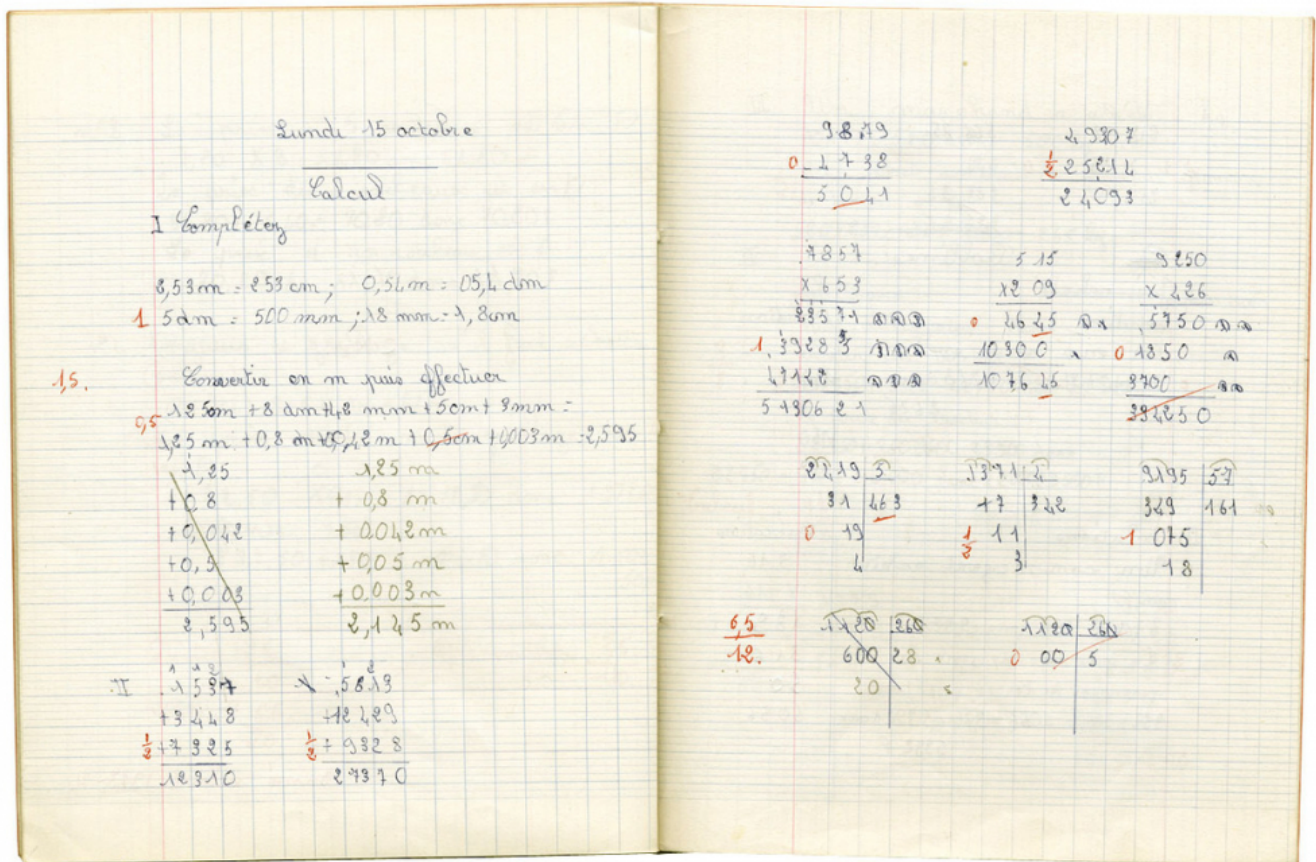 Lundi 15 octobre
Calcul
I Complétez
2,53m = 253 cm ; 0,54m = 05,4 dm
1 5dm = 500 mm ; 18 mm = 1,8cm
1,5.
Convertir en m puis effectuer
0,5 125cm + 8 dm + 42 mm + 5cm + 3mm =
1,25 m + 0,8 m + 0,042 m + 0,5cm + 0,003m = 2,595
1,25
+0,8
+0,042
+0,5
+0,003
2,595
1,25 m
+ 0,8 m
+ 0,042m
+ 0,05 m
+ 0,003 m
2,145 m
II
1 1 2
1537
+3448
1/2 +7325
12310
1 2
5613
+12429
1/2 + 9328
27370
9879
0 - 4738
5041
49307
1/2 25214
24093
7857
x 653
23571
1. 39285
47142
5130621
515
x209
0 4645
10300
107645
9250
x 426
5750
0 1850
3700
394250
2419 5
31 463
0 19
4
1371 4
17 342
1/2 11
3
9195 57
349 161
1 075
18
6,5
12.
1120 260
600 28
20
1120 260
0 00 5